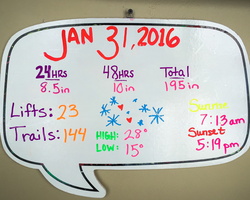 JAN 31, 2016
24HRS 48HRS Total
8.5in 10in 195in
Lifts: 23
Trails: 144
HIGH: 28°
LOW: 15°
Sunrise
7:13am
Sunset
5:19pm